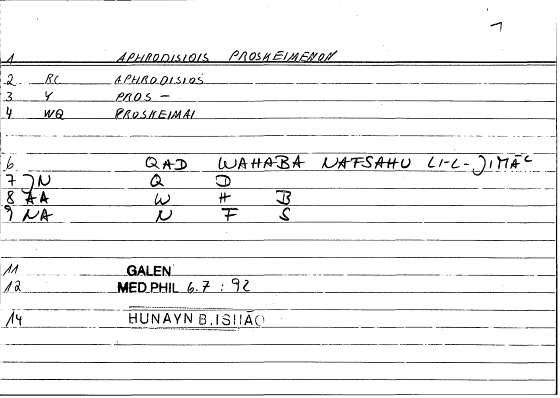 1 APHRODISIOIS PROSKEIMENON
2 RC APHRODISIOS
3 Y PROS -
4 WQ PROSKEIMAI
6 QAD WAHABA NAFSAHU LI-L-JIMĀC
7 JN Q D
8 AA W H B
9 NA N F S
11 GALEN
12 MED.PHIL 6.7 : 92
14 HUNAYN B.ISḤĀQ